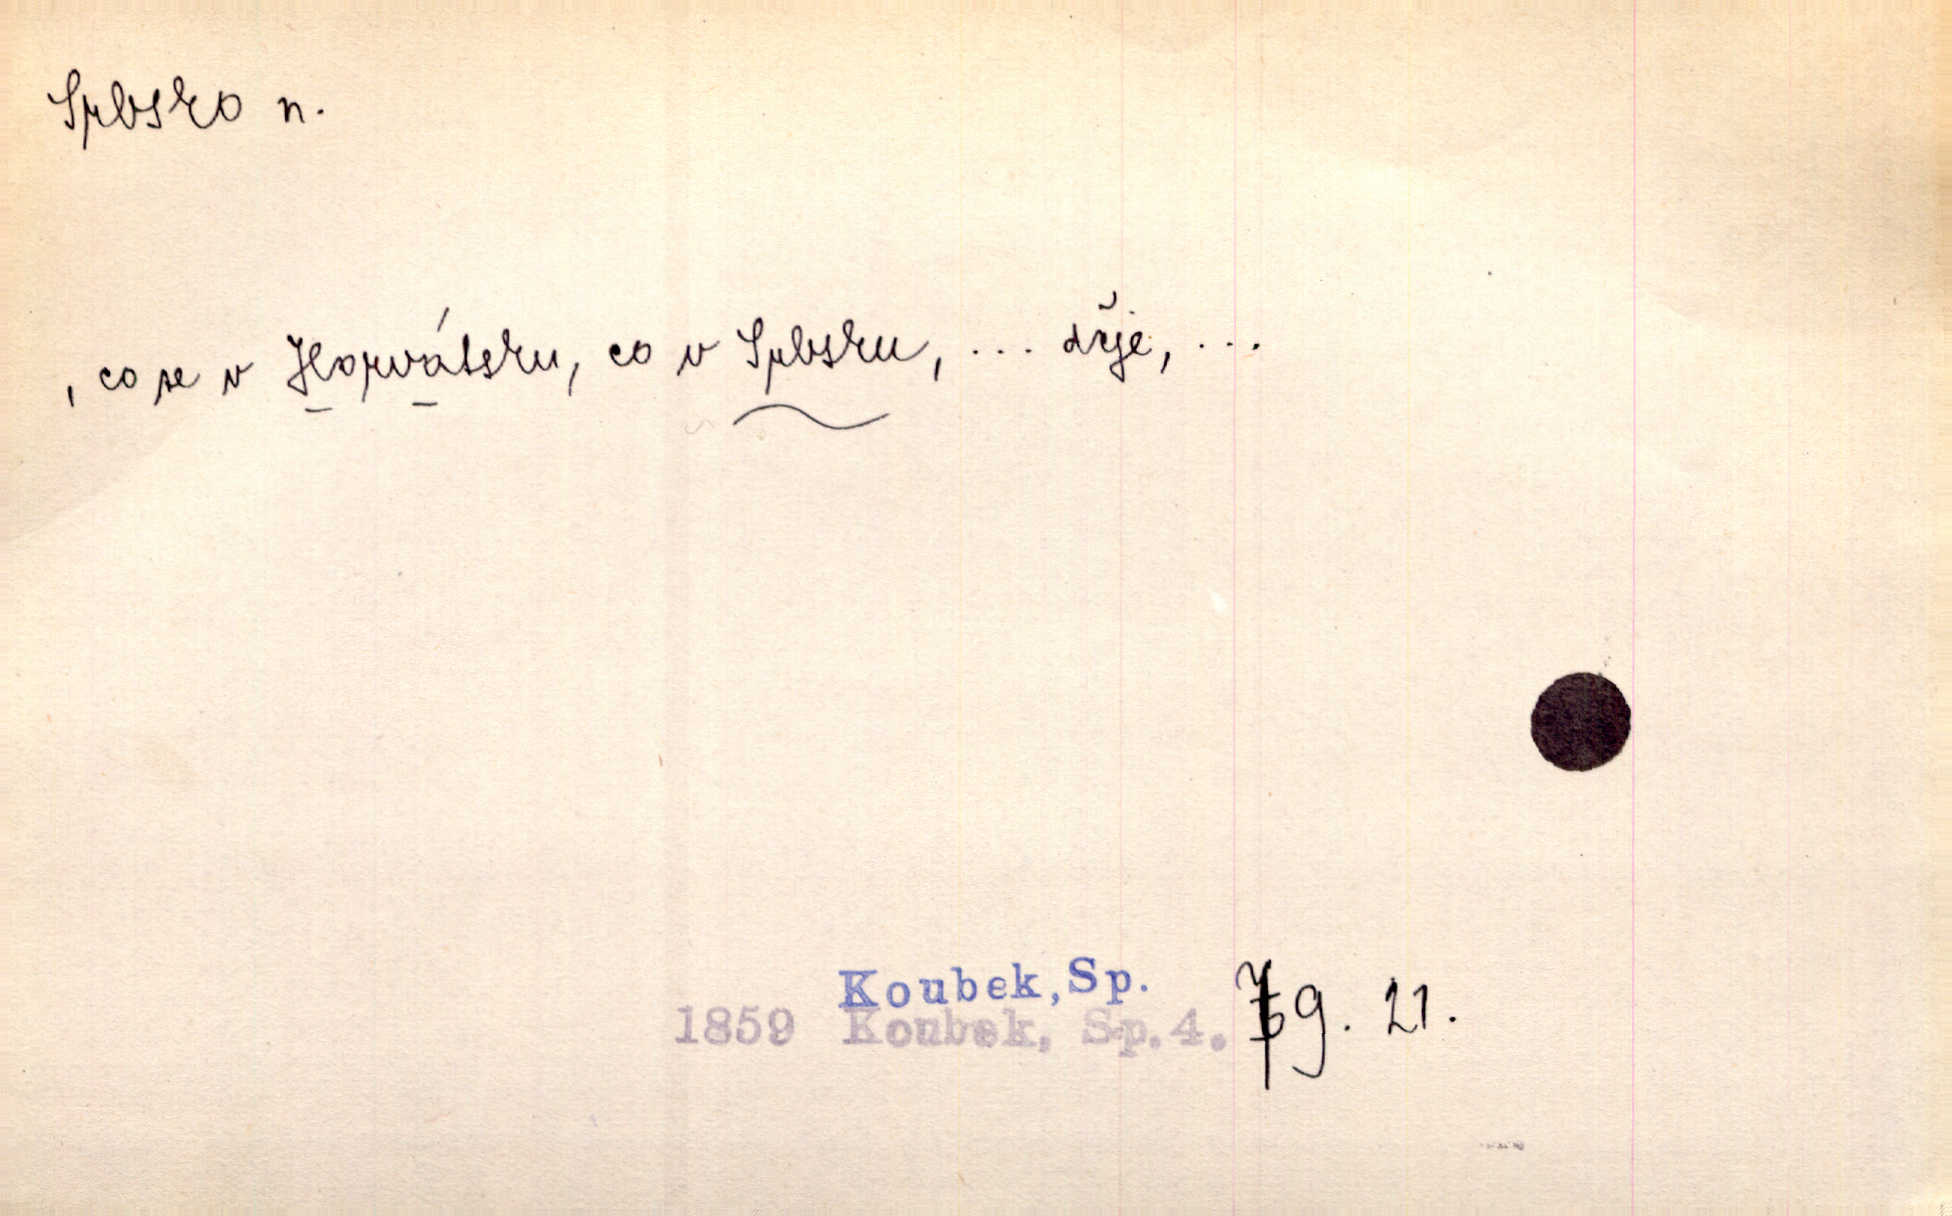 Srbsko n.
, co se v Horvátsku, co v Srbsku, ... děje, ...
Koubek, Sp.
1859 Koubek, Sp. 4. 9. 21.